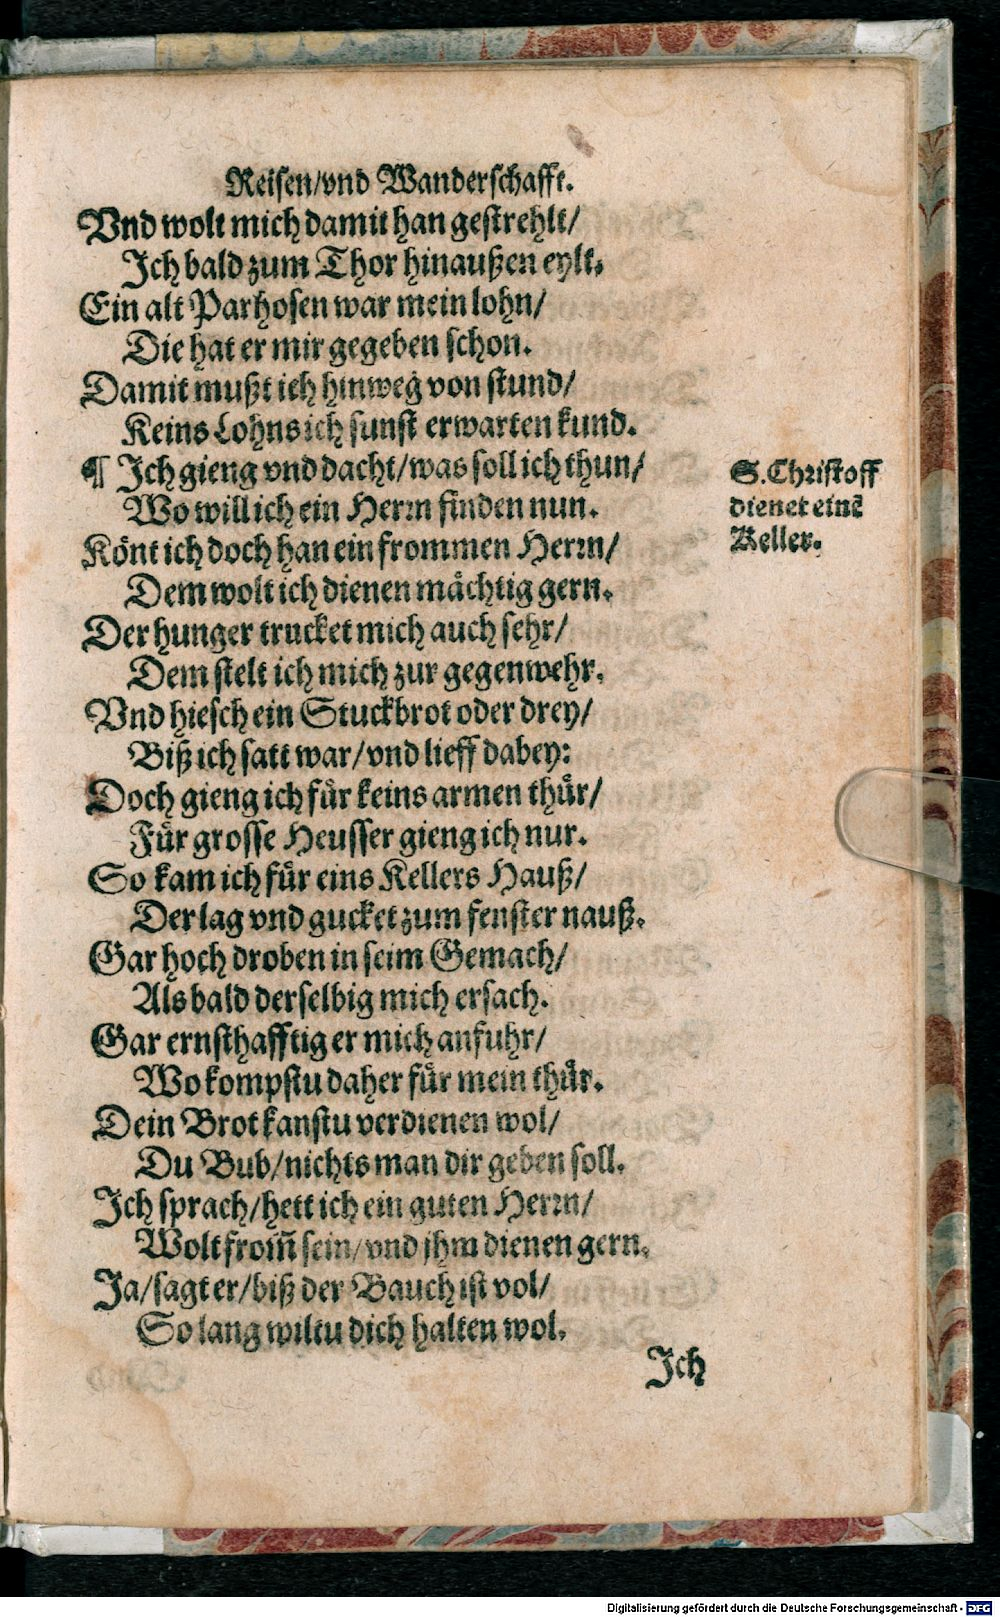 Reisen/vnd Wanderschafft.
Vnd wolt mich damit han gestrehlt/
Ich bald zum Thor hinaußen eylt.
Ein alt Parhosen war mein lohn/
Die hat er mir gegeben schon.
Damit mußt ich hinweg von stund/
Keins Lohns ich sunst erwarten kund.
¶ Ich gieng vnd dacht/was soll ich thun/
Wo will ich ein Herrn finden nun.
Könt ich doch han ein frommen Herrn/
Dem wolt ich dienen mächtig gern.
Der hunger trucket mich auch sehr/
Dem stelt ich mich zur gegenwehr.
Vnd hiesch ein Stuckbrot oder drey/
Biß ich satt war/vnd lieff dabey:
Doch gieng ich für keins armen thür/
Für grosse Heusser gieng ich nur.
So kam ich für eins Kellers Hauß/
Der lag vnd gucket zum fenster nauß.
Gar hoch droben in seim Gemach/
Als bald derselbig mich ersach.
Gar ernsthafftig er mich anfuhr/
Wo kompstu daher für mein thür.
Dein Brot kanstu verdienen wol/
Du Bub/nichts man dir geben soll.
Ich sprach/hett ich ein guten Herrn/
Wolt from̃ sein/vnd jhm dienen gern.
Ja/sagt er/biß der Bauch ist vol/
So lang wiltu dich halten wol.
Ich
S. Christoff
dienet einẽ
Keller.
Digitalisierung gefördert durch die Deutsche Forschungsgemeinschaft - DFG